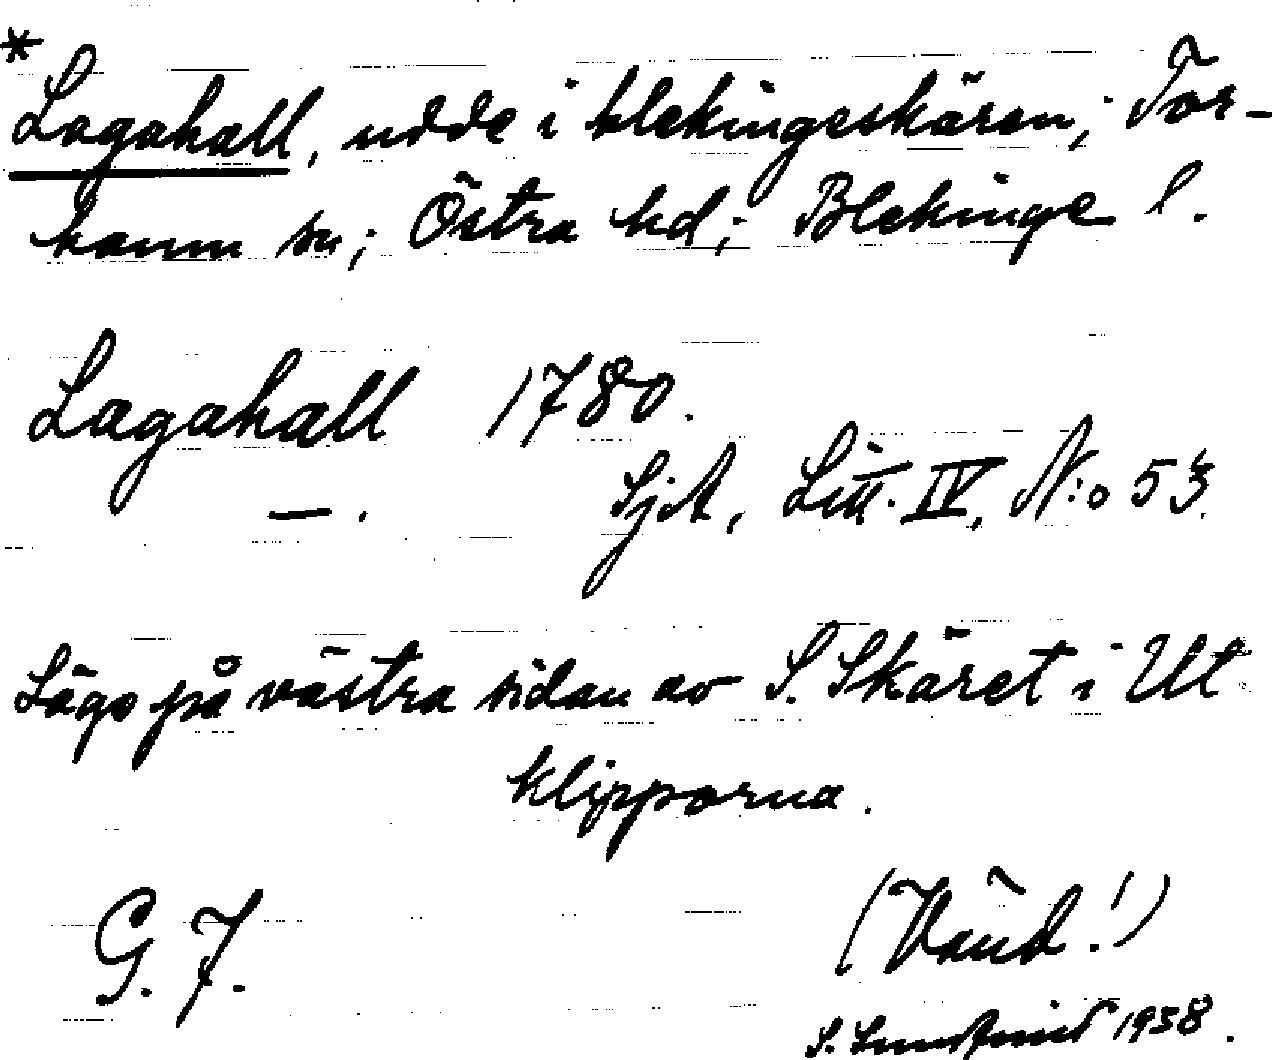 * Lagahall, udde i blekingeskären; Tor-
hamn sn; Östra hd; Blekinge l.
Lagahall 1780.
— . SjA, Litt. IV, N:o 53.
Läge på västra sidan av S. Skäret i Ut
klipporna.
G. F.
(Vänd!)
S. 1938.